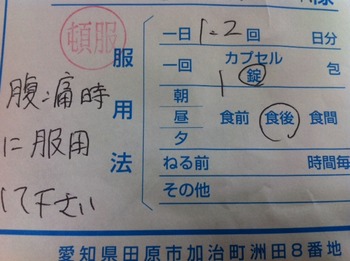 頓服
服用法
腹痛時
に服用
して下さい
一日 1~2 回 日分
一回 1 カプセル 錠 包
朝 昼 夕 食前 食後 食間
ねる前 時間毎
その他
愛知県田原市加治町洲田8番地